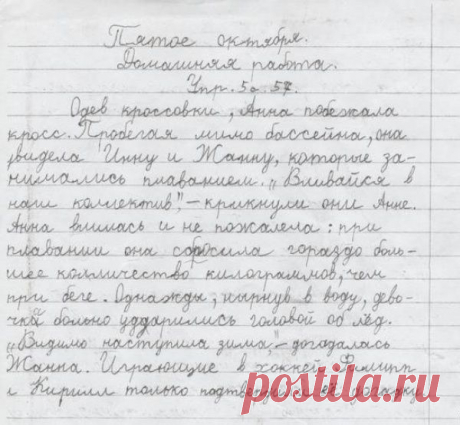 Пятое октября.
Домашняя работа.
Упр. 5а. 57.
Одев кроссовки, Анна побежала
кросс. Пробегая мимо бассейна, она
увидела Инну и Жанну, которые за-
нимались плаванием. „Вливайся в
наш коллектив", – крикнули они Анне.
Анна влилась и не пожалела: при
плавании она сбросила гораздо боль-
шее колличество килограммов, чем
при беге. Однажды, нырнув в воду, дево-
чки больно ударились головой об лёд.
„Видимо наступила зима", – догадалась
Жанна. Играющие в хоккей Филипп
и Кирилл только подтвердили её догадку.
postila.ru